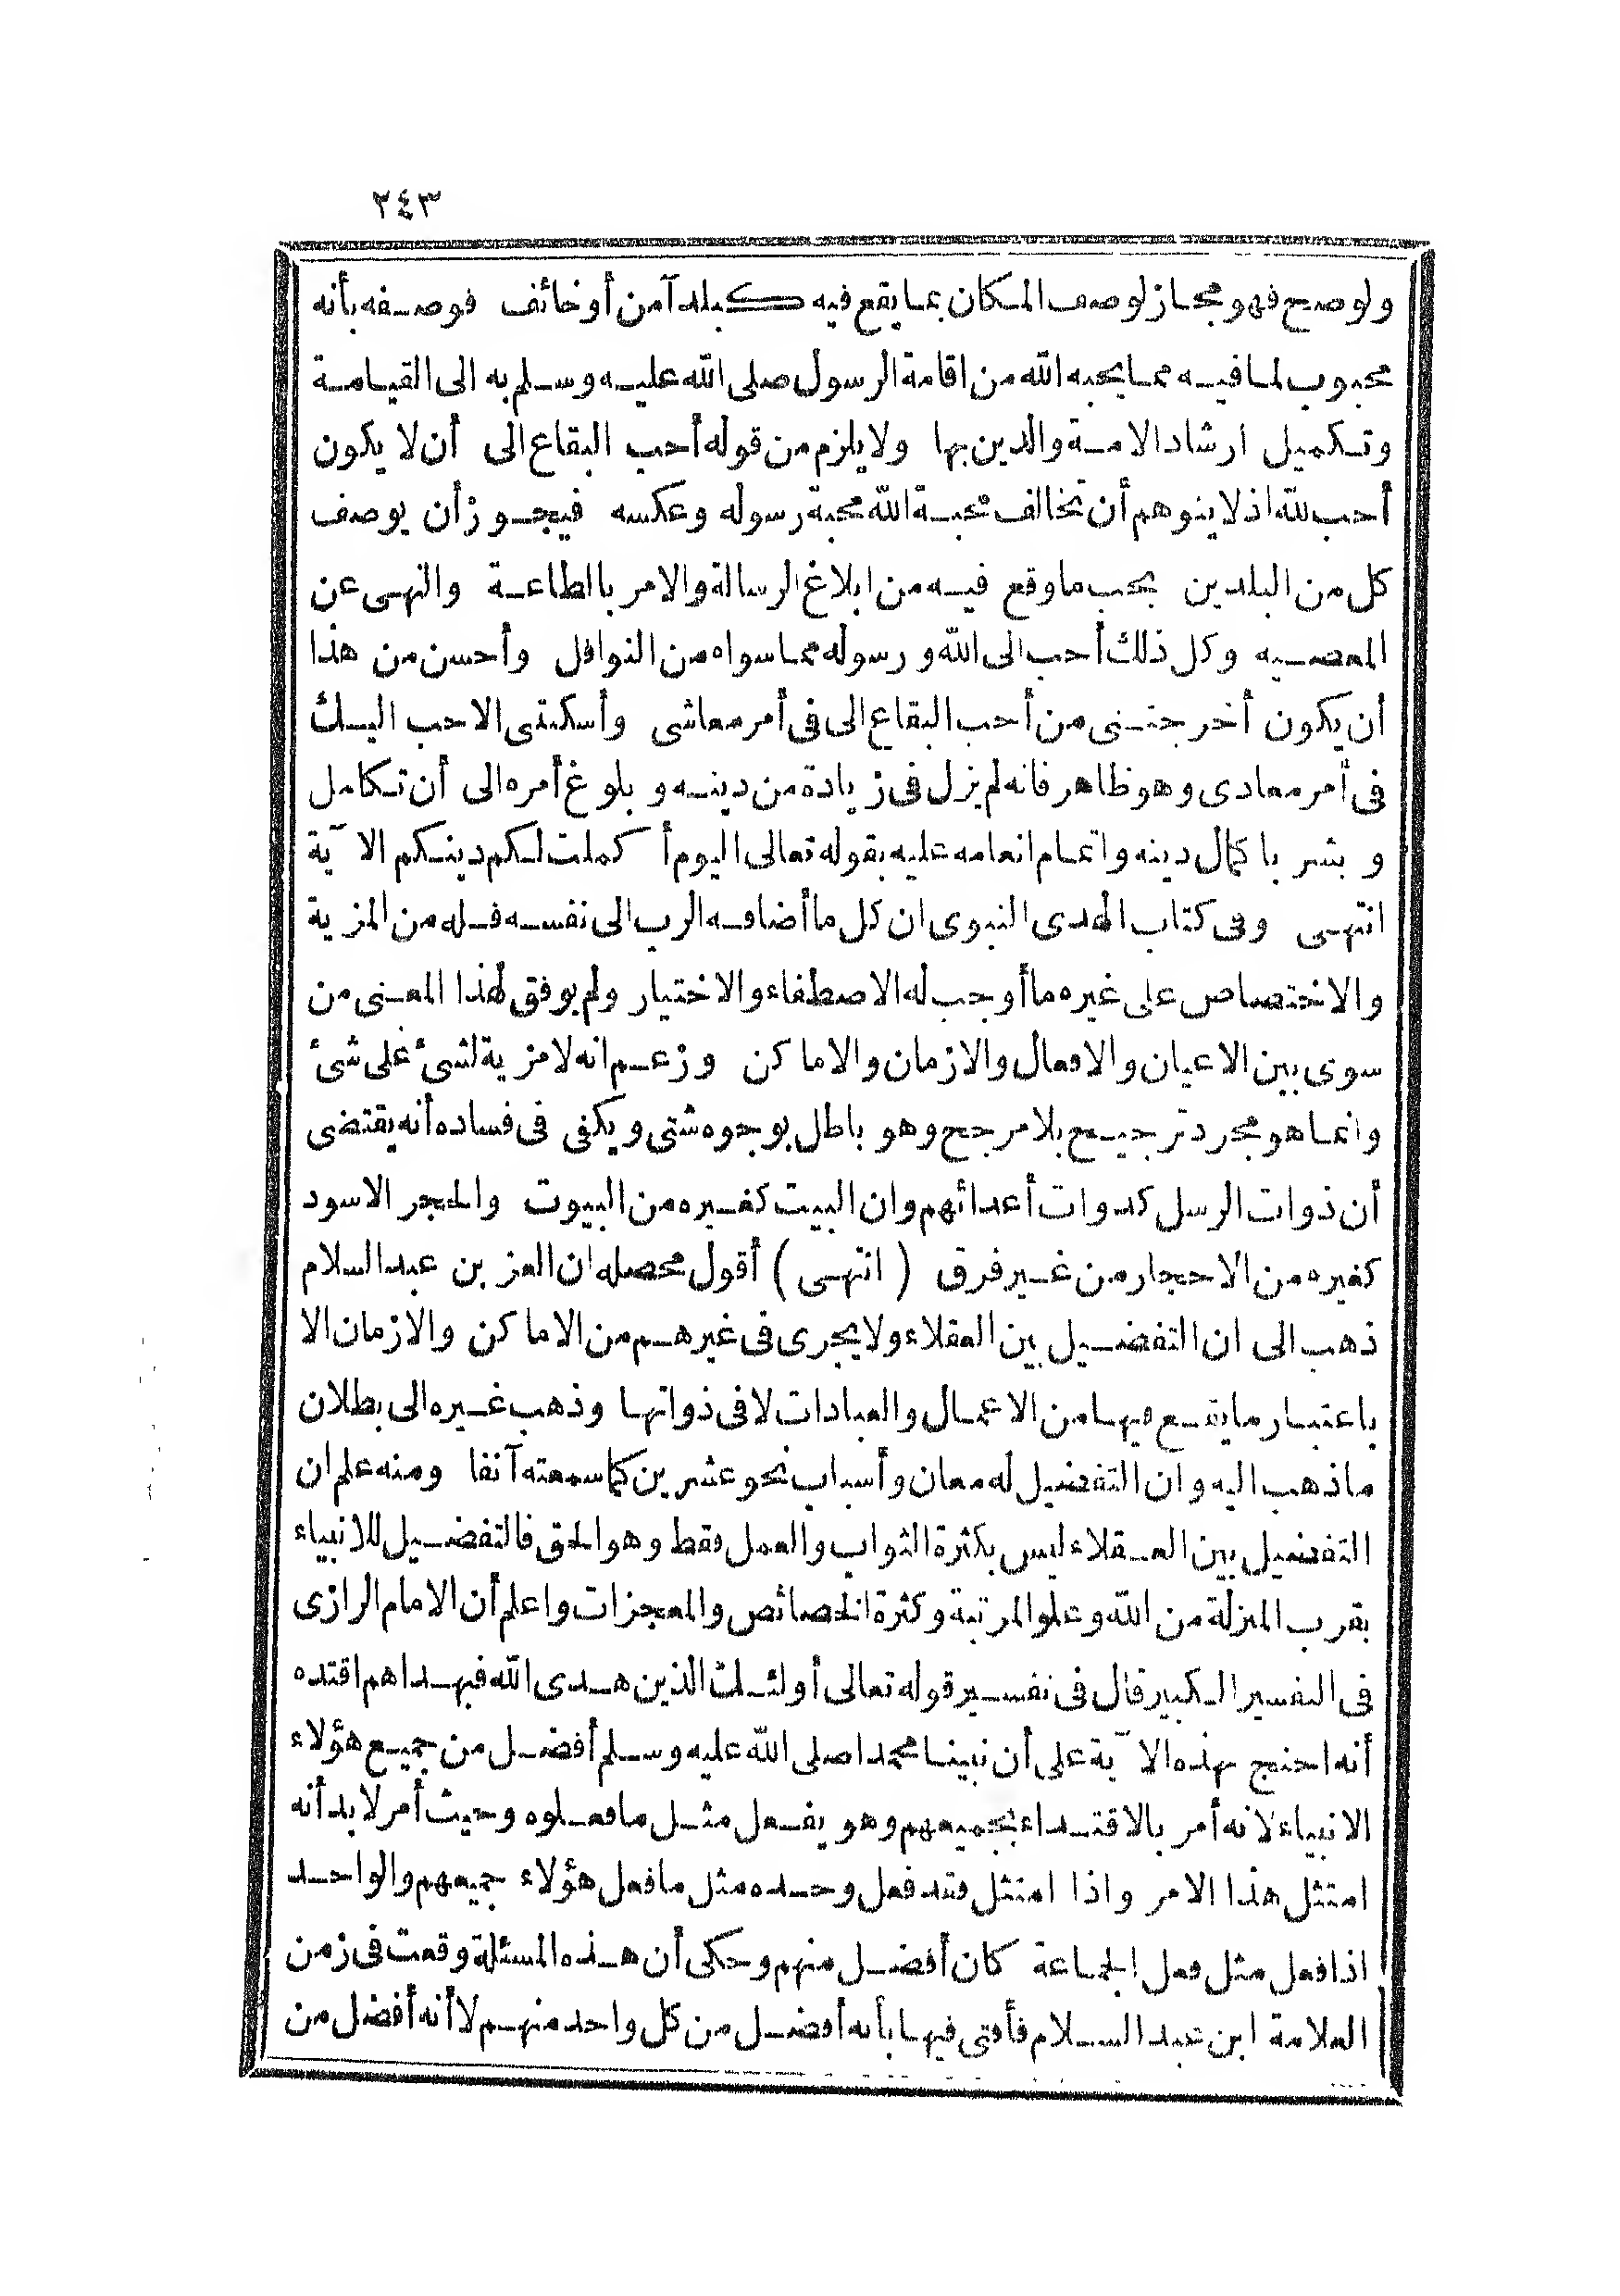 ٢٤٣
ولو صح فهو مجاز لوصف المكان بما يقع فيه كبلد آمن أو خائف فوصفه بأنه
محبوب لما فيه مما يحبه الله من اقامة الرسول صلى الله عليه وسلم به الى القيامة
وتكميل ارشاد الامة والدين بها ولا يلزم من قوله أحب البقاع الى أن لا يكون
أحب لله اذ لا يتوهم أن تخالف محبة الله محبة رسوله وعكسه فيجوز أن يوصف
كل من البلدين بحب ما وقع فيه من ابلاغ الرسالة والامر بالطاعة والنهى عن
المعصيه وكل ذلك أحب الى الله ورسوله مما سواه من النوافل وأحسن من هذا
أن يكون أخرجتنى من أحب البقاع الى فى أمر معاشى وأسكنتى الاحب اليك
فى أمر معادى وهو ظاهر فانه لم يزل فى زيادة من دينه وبلوغ أمره الى أن تكامل
وبشر باكمال دينه واتمام انعامه عليه بقوله تعالى اليوم أكملت لكم دينكم الآية
انتهى وفى كتاب الهدى النبوى ان كل ما أضافه الرب الى نفسه فله من المزية
والاختصاص على غيره ما أوجب له الاصطفاء والاختيار ولم يوفق لهذا المعنى من
سوى بين الاعيان والافعال والازمان والاماكن وزعم انه لا مزية لشئ على شئ
وانما هو مجرد ترجيح بلا مرجح وهو باطل بوجوه شتى ويكفى فى فساده أنه يقتضى
أن ذوات الرسل كدوات أعدائهم وان البيت كغيره من البيوت والحجر الاسود
كغيره من الاحجار من غير فرق (انتهى) أقول محصله ان العز بن عبد السلام
ذهب الى ان التفضيل بين العقلاء ولا يجرى فى غيرهم من الاماكن والازمان الا
باعتبار ما يقع فيها من الاعمال والعبادات لا فى ذواتها وذهب غيره الى بطلان
ما ذهب اليه وان التفضيل له معان وأسباب نحو عشرين كما سمعته آنفا ومنه علم ان
التفضيل بين العقلاء ليس بكثرة الثواب والعمل فقط وهو الحق فالتفضيل للانبياء
بقرب المنزلة من الله وعلو المرتبة وكثرة الخصائص والمعجزات واعلم أن الامام الرازى
فى التفسير الكبير قال فى تفسير قوله تعالى أولئك الذين هدى الله فبهداهم اقتده
أنه احتج بهذه الآية على أن نبينا محمدا صلى الله عليه وسلم أفضل من جميع هؤلاء
الانبياء لانه أمر بالاقتداء بجميعهم وهو يفعل مثل ما فعلوه وحيث أمر لا بد أنه
امتثل هذا الامر واذا امتثل فقد فعل وحده مثل ما فعل هؤلاء جميعهم والواحد
اذا فعل مثل فعل الجماعة كان أفضل منهم وحكى أن هذه المسئلة وقعت فى زمن
العلامة ابن عبد السلام فأفتى فيها بأنه أفضل من كل واحد منهم لا أنه أفضل من